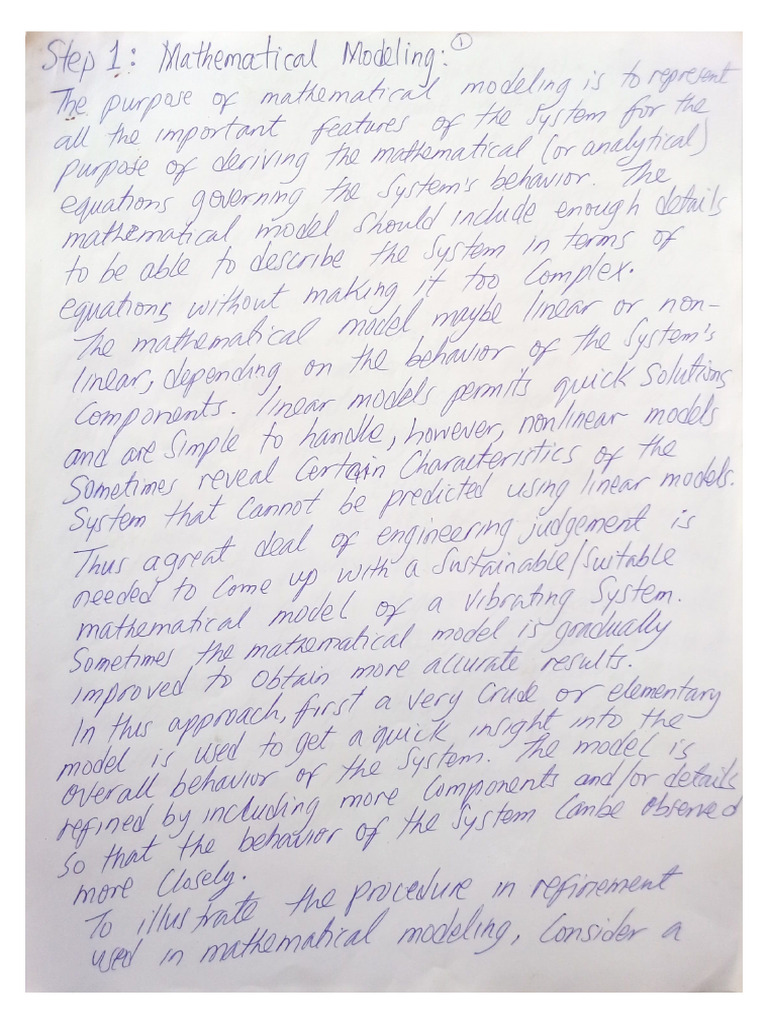 Step 1: Mathematical Modeling: ①
The purpose of mathematical modeling is to represent
all the important features of the System for the
purpose of deriving the mathematical (or analytical)
equations governing the System's behavior. The
mathematical model should include enough details
to be able to describe the System in terms of
equations without making it too Complex.
The mathematical model maybe linear or non-
linear, depending on the behavior of the System's
Components. linear models permits quick Solutions
and are Simple to handle, however, nonlinear models
Sometimes reveal Certain Characteristics of the
System that Cannot be predicted using linear models.
Thus a great deal of engineering judgement is
needed to Come up with a Sustainable/Suitable
mathematical model of a vibrating System.
Sometimes the mathematical model is gradually
improved to Obtain more accurate results.
In this approach, first a very Crude or elementary
model is used to get a quick insight into the
overall behavior of the System. The model is
refined by including more Components and/or details
So that the behavior of the System Canbe Observed
more Closely.
To illustrate the procedure in refinement
used in mathematical modeling, Consider a